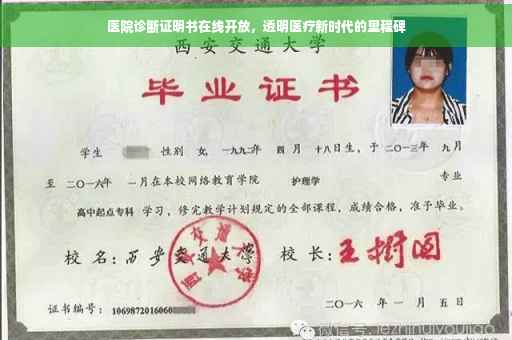 医院诊断证明书在线开放，透明医疗新时代的里程碑
西安交通大学
毕业证书
学生 性别 女，一九九二年 四月 十八日生，于二〇一三年 九月
至 二〇一六年 一月在本校网络教育学院 护理学 专业
高中起点专科 学习，修完教学计划规定的全部课程，成绩合格，准予毕业。
校名：西安交通大学 校长：王树国
西安交通大学
证书编号：1069872016060
二〇一六年 一月 五日
微信号: jezhihuiyoujiao